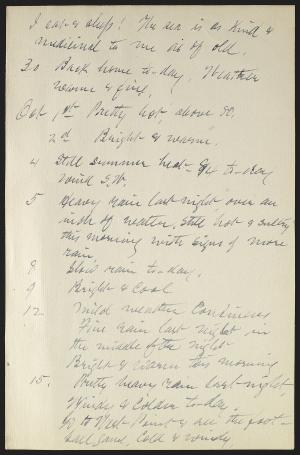 I eat & sleep! The sea is as kind &
medicinal to me as of old.
30 Back home to-day. Weather
warm & fine.
Oct 1st Pretty hot, above 80.
2d Bright & warm.
4 Still summer heat to-day
wind S.W.
5 Heavy rain last night over an
inch of water, still hot & sultry
this morning with signs of more
rain.
8 Slow rain to-day.
9 Bright & cool
12 Mild weather continues
Fine rain last night in
the middle of the night
Bright & warm this morning
15. Pretty heavy rain last night,
Windy & colder to-day.
Go to West Point & see the foot-
ball game, cold & windy